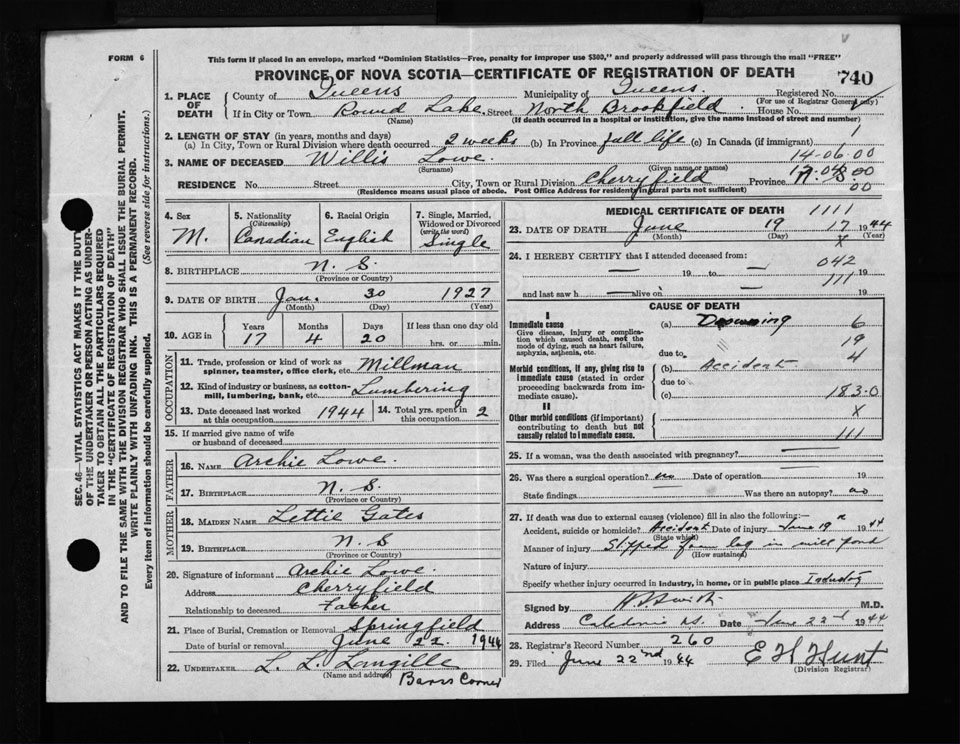 FORM 6
This form if placed in an envelope, marked "Dominion Statistics—Free, penalty for improper use $300," and properly addressed will pass through the mail "FREE"
PROVINCE OF NOVA SCOTIA—CERTIFICATE OF REGISTRATION OF DEATH 740
1. PLACE OF DEATH County of Queens Municipality of Queens Registered No.
(For use of Registrar General only)
If in City or Town Round Lake, Street North Brookfield House No.
(Name) (If death occurred in a hospital or institution, give the name instead of street and number)
2. LENGTH OF STAY (in years, months and days)
(a) In City, Town or Rural Division where death occurred 2 weeks (b) In Province full life (c) In Canada (if immigrant) 1
3. NAME OF DECEASED Willis Lowe. 14-06-00
(Surname) (Given name or names)
RESIDENCE No. Street City, Town or Rural Division Cherryfield Province N. S.
00
(Residence means usual place of abode. Post Office Address for residents in rural parts not sufficient)
4. Sex M.
5. Nationality (Citizenship) Canadian
6. Racial Origin English
7. Single, Married, Widowed or Divorced (write the word) Single
8. BIRTHPLACE N. S.
(Province or Country)
9. DATE OF BIRTH Jan. 30 1927
(Month) (Day) (Year)
10. AGE in Years Months Days If less than one day old
17 4 20 hrs. or min.
OCCUPATION
11. Trade, profession or kind of work as spinner, teamster, office clerk, etc. Millman
12. Kind of industry or business, as cotton-mill, lumbering, bank, etc. Lumbering
13. Date deceased last worked at this occupation 1944
14. Total yrs. spent in this occupation 2
15. If married give name of wife or husband of deceased
FATHER
16. NAME Archie Lowe.
17. BIRTHPLACE N. S.
(Province or Country)
MOTHER
18. MAIDEN NAME Lettie Gates
19. BIRTHPLACE N. S
(Province or Country)
20. Signature of informant Archie Lowe.
Address Cherryfield
Relationship to deceased Father
21. Place of Burial, Cremation or Removal Springfield
Date of burial or removal June 22 1944
22. UNDERTAKER L. L. Langille
(Name and address) Barss Corner
MEDICAL CERTIFICATE OF DEATH 1111
23. DATE OF DEATH June 19 17 1944
(Month) (Day) X (Year)
24. I HEREBY CERTIFY that I attended deceased from: 042
19 to 19
111
and last saw h alive on 19
CAUSE OF DEATH
I
Immediate cause (a) Drowning 6
Give disease, injury or complication which caused death, not the mode of dying, such as heart failure, asphyxia, asthenia, etc.
19
due to 4
Morbid conditions, if any, giving rise to immediate cause (stated in order proceeding backwards from immediate cause).
(b) Accident
due to
(c) 183-0
II X
Other morbid conditions (if important) contributing to death but not causally related to immediate cause.
111
25. If a woman, was the death associated with pregnancy?
26. Was there a surgical operation? no Date of operation 19
State findings Was there an autopsy? no
27. If death was due to external causes (violence) fill in also the following:—
Accident, suicide or homicide? Accident Date of injury June 19 1944
(State which)
Manner of injury Slipped from log in mill pond
(How sustained)
Nature of injury
Specify whether injury occurred in industry, in home, or in public place Industry
Signed by M.D.
Address Caledonia N.S. Date June 22 1944
28. Registrar's Record Number 260
29. Filed June 22nd 1944 E H Hunt
(Division Registrar)
SEC. 46—VITAL STATISTICS ACT MAKES IT THE DUTY
OF THE UNDERTAKER OR PERSON ACTING AS UNDER-
TAKER TO OBTAIN ALL THE PARTICULARS REQUIRED
IN THE "CERTIFICATE OF REGISTRATION OF DEATH"
AND TO FILE THE SAME WITH THE DIVISION REGISTRAR WHO SHALL ISSUE THE BURIAL PERMIT.
WRITE PLAINLY WITH UNFADING INK. THIS IS A PERMANENT RECORD.
Every item of information should be carefully supplied. (See reverse side for instructions.)